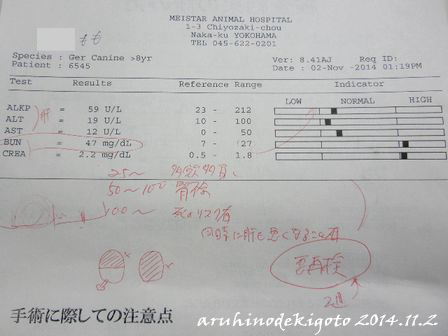 MEISTAR ANIMAL HOSPITAL
1-3 Chiyozaki-chou
Naka-ku YOKOHAMA
TEL 045-622-0201
もも
Species : Ger Canine >8yr Ver: 8.41AJ Req ID:
Patient : 6545 Date : 02-Nov -2014 01:19PM
Test Results Reference Range Indicator
LOW NORMAL HIGH
ALKP = 59 U/L 23 - 212
ALT = 19 U/L 10 - 100
AST = 12 U/L 0 - 50
BUN = 47 mg/dL 7 - 27
CREA = 2.2 mg/dL 0.5 - 1.8
肝
25～
50～100
100～
要再検
2週
手術に際しての注意点
aruhinodekigoto 2014.11.2